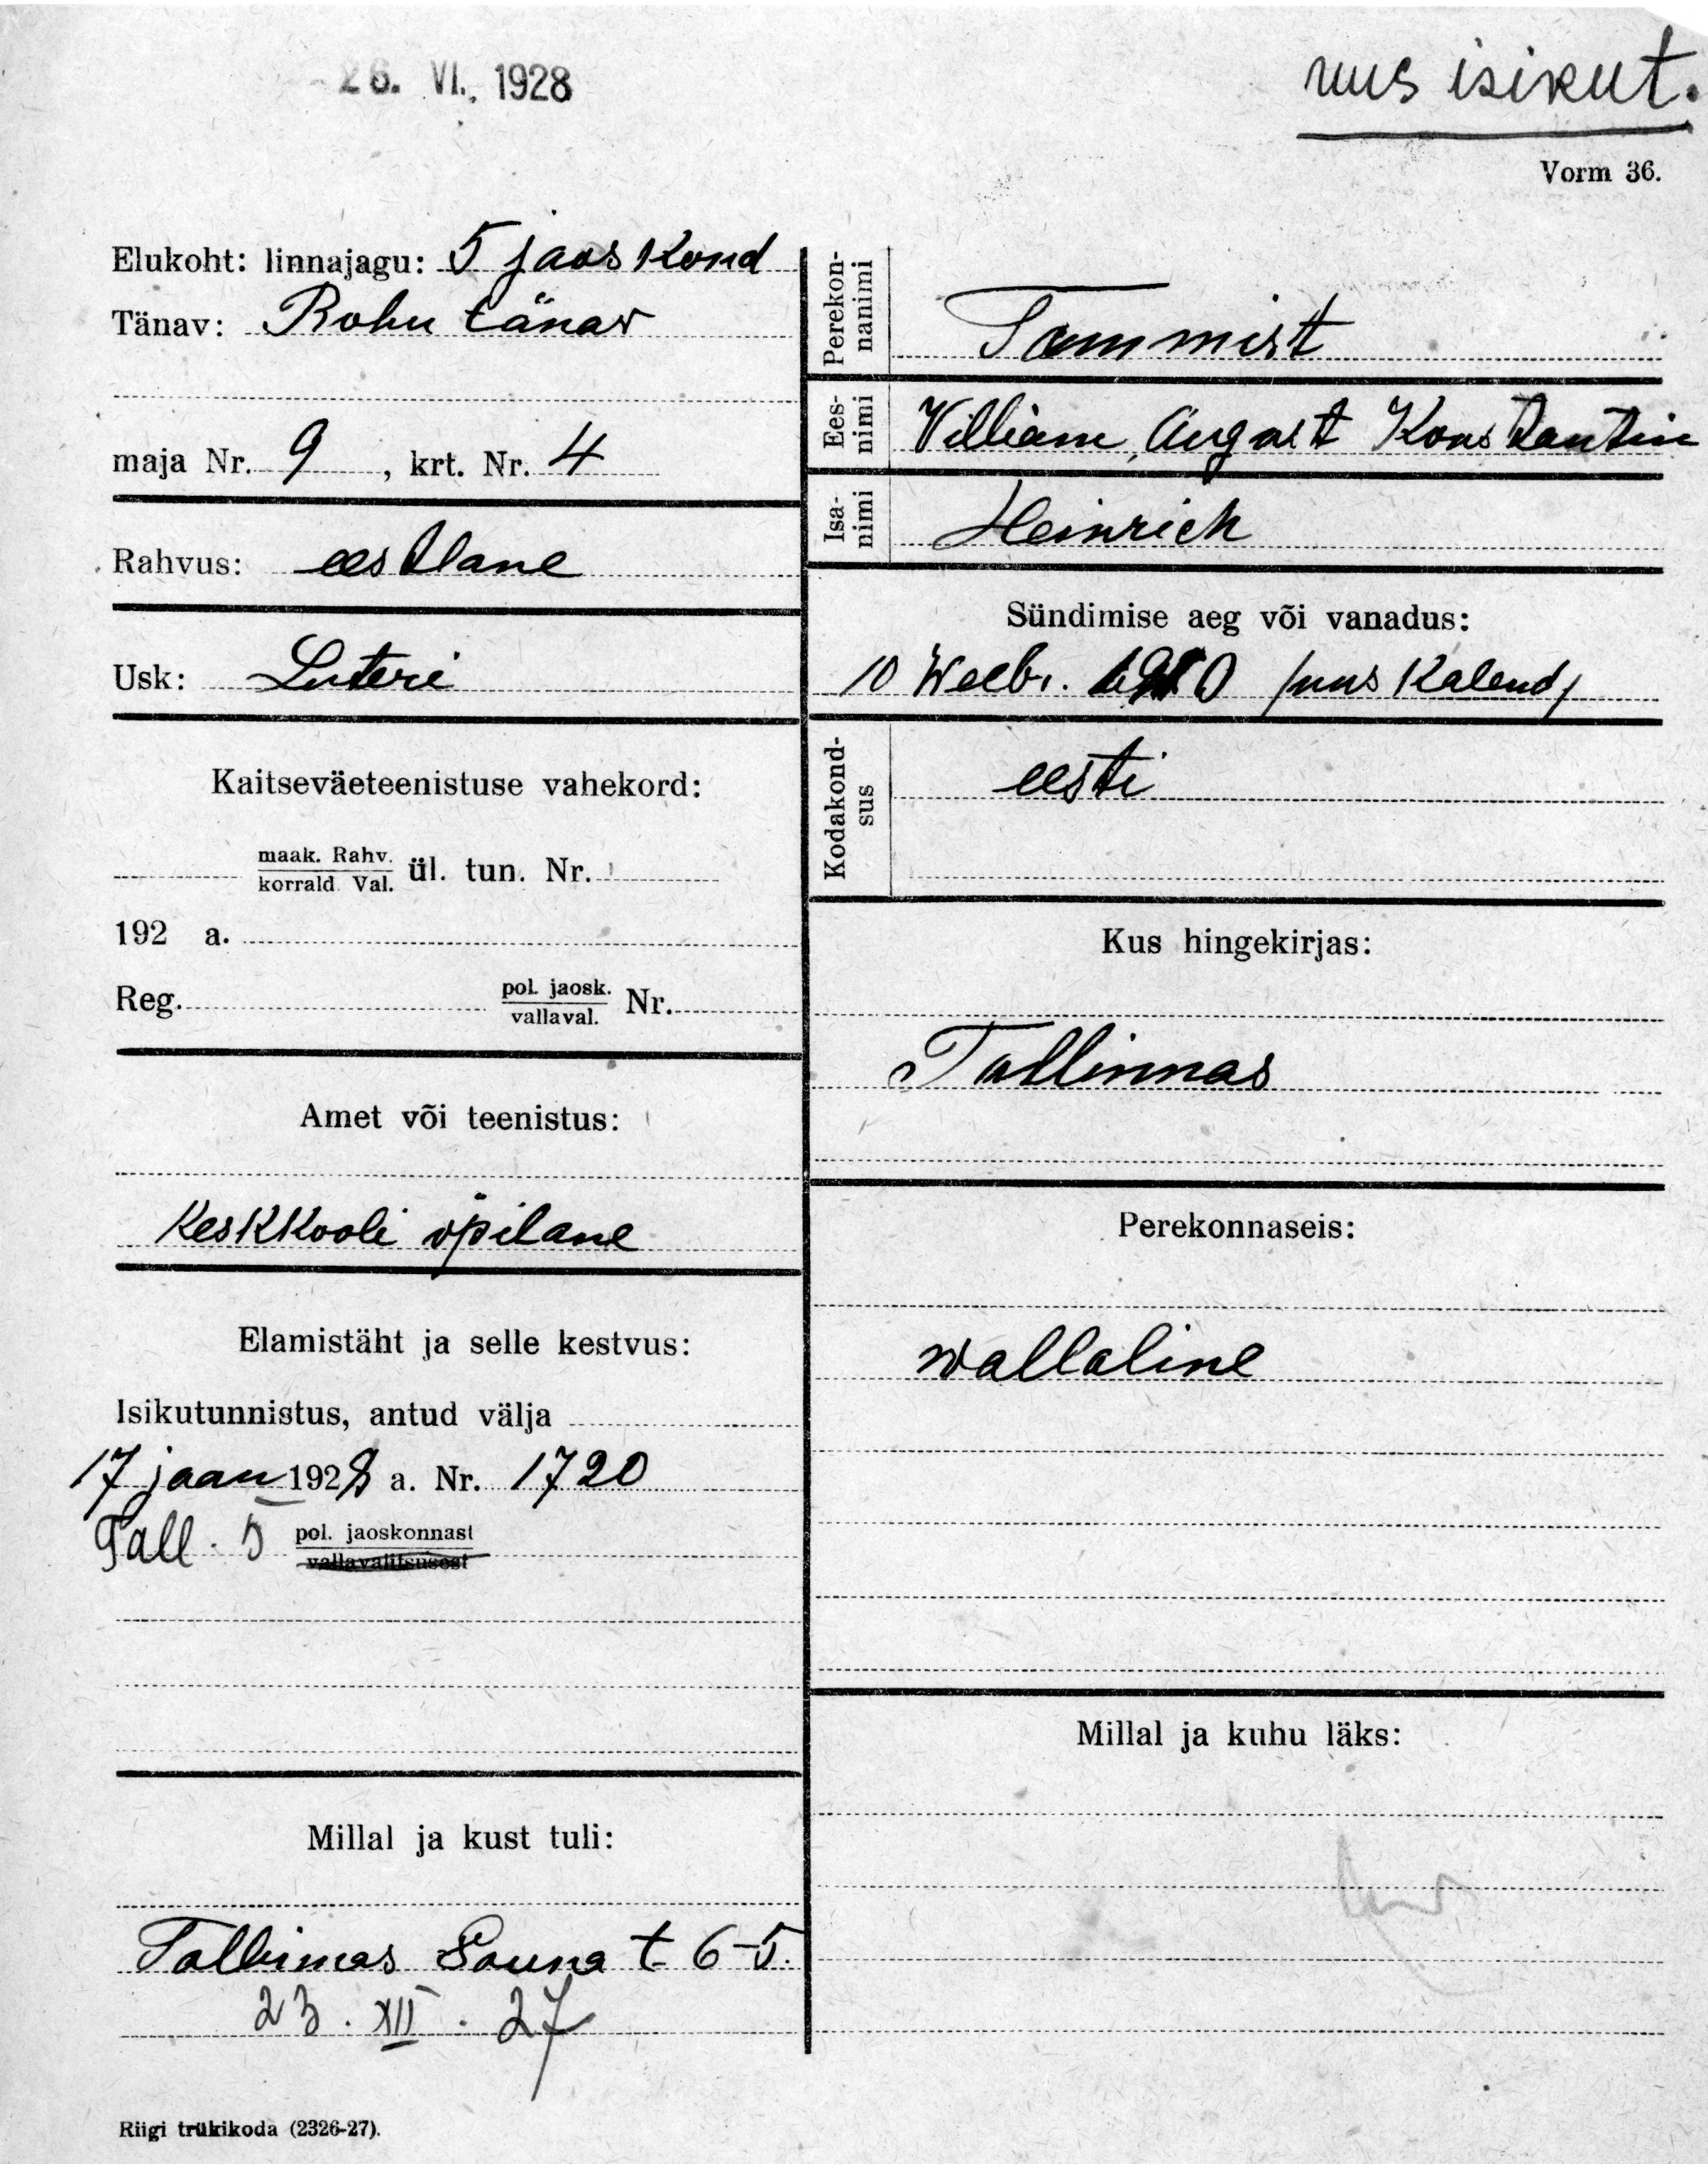 26. VI. 1928
uus isikut.
Vorm 36.
Elukoht: linnajagu: 5 jaoskond
Tänav: Rohu tänav
maja Nr. 9, krt. Nr. 4
Rahvus: eestlane
Usk: Luteri
Kaitseväeteenistuse vahekord:
maak. Rahv.
korrald. Val. ül. tun. Nr.
192 a.
Reg. pol. jaosk. Nr.
vallaval.
Amet või teenistus:
Keskkooli õpilane
Elamistäht ja selle kestvus:
Isikutunnistus, antud välja
17 jaan 1928 a. Nr. 1720
Tall. 5 pol. jaoskonnast
vallavalitsusest
Millal ja kust tuli:
Tallinnas Sauna t 6-5.
23. XII. 27
Riigi trükikoda (2326-27).
Perekon-
nanimi
Tammist
Ees-
nimi
Villiam, August Konstantin
Isa-
nimi
Heinrich
Sündimise aeg või vanadus:
10 Weebr. 1910 /uus Kalend/
Kodakond-
sus
eesti
Kus hingekirjas:
Tallinnas
Perekonnaseis:
wallaline
Millal ja kuhu läks: